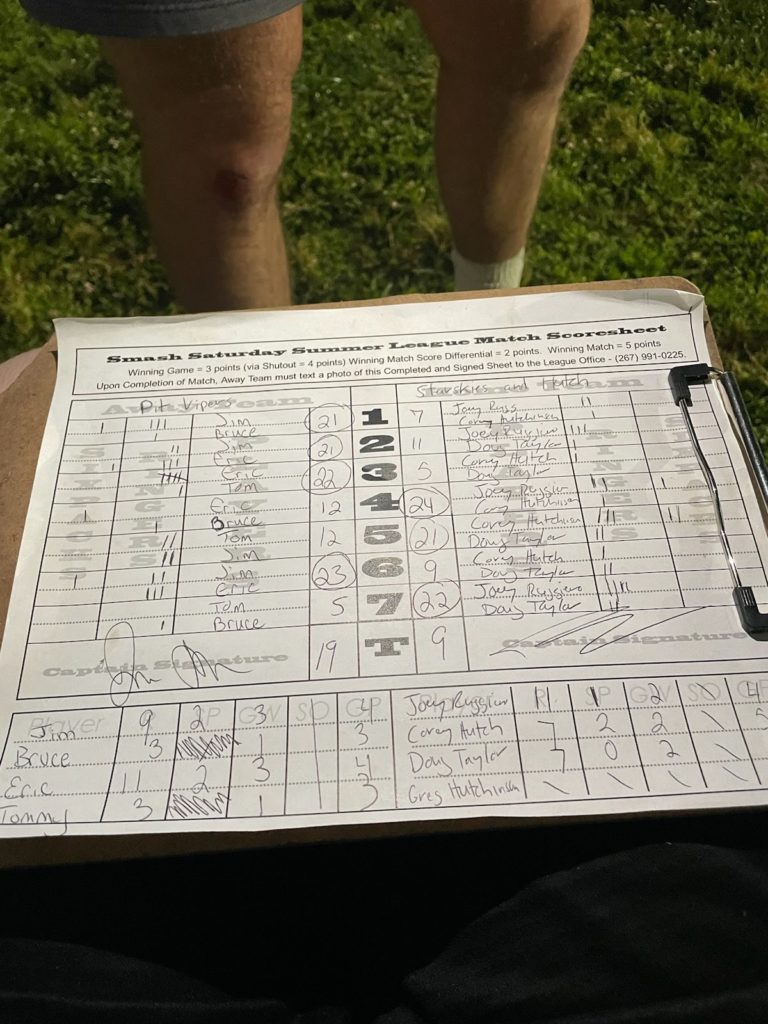 Smash Saturday Summer League Match Scoresheet
Winning Game = 3 points (via Shutout = 4 points) Winning Match Score Differential = 2 points. Winning Match = 5 points
Upon Completion of Match, Away Team must text a photo of this Completed and Signed Sheet to the League Office - (267) 991-0225.
Away Team Pit Vipers
Starskies and Hutch
Jim 21 1 7 Joey Ruggs
Bruce Corey Hutchinson
Jim 21 2 11 Joey Ruggiero
Eric Doug Taylor
Eric 22 3 5 Corey Hutch
Tom Doug Taylor
Eric 12 4 24 Joey Ruggiero
Bruce Corey Hutchinson
Tom 12 5 21 Corey Hutchinson
Jim Doug Taylor
Jim 23 6 9 Corey Hutch
Eric Doug Taylor
Tom 5 7 22 Joey Ruggiero
Bruce Doug Taylor
Captain Signature 19 T 9 Captain Signature
Player SP GW SO GP
Jim 9 2 3 4 Joey Ruggiero 11 1 2 \ 4
Bruce 3 1 3 Corey Hutch 7 2 2 \ 5
Eric 11 2 3 4 Doug Taylor 7 0 2 \
Tommy 3 1 3 Greg Hutchinson \ \ \ \